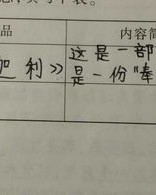 品
内容简
利》
这是一部
是一份"奉